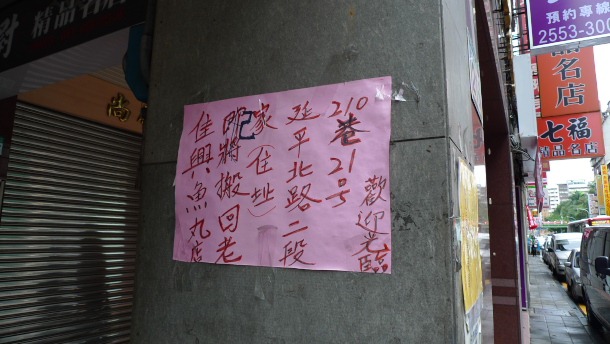 佳興魚丸店
已
即將搬回老
家（住址）
延平北路二段
210巷21号
歡迎光臨
精品名店
尚
預約專線
2553-300
品名店
七福
精品名店